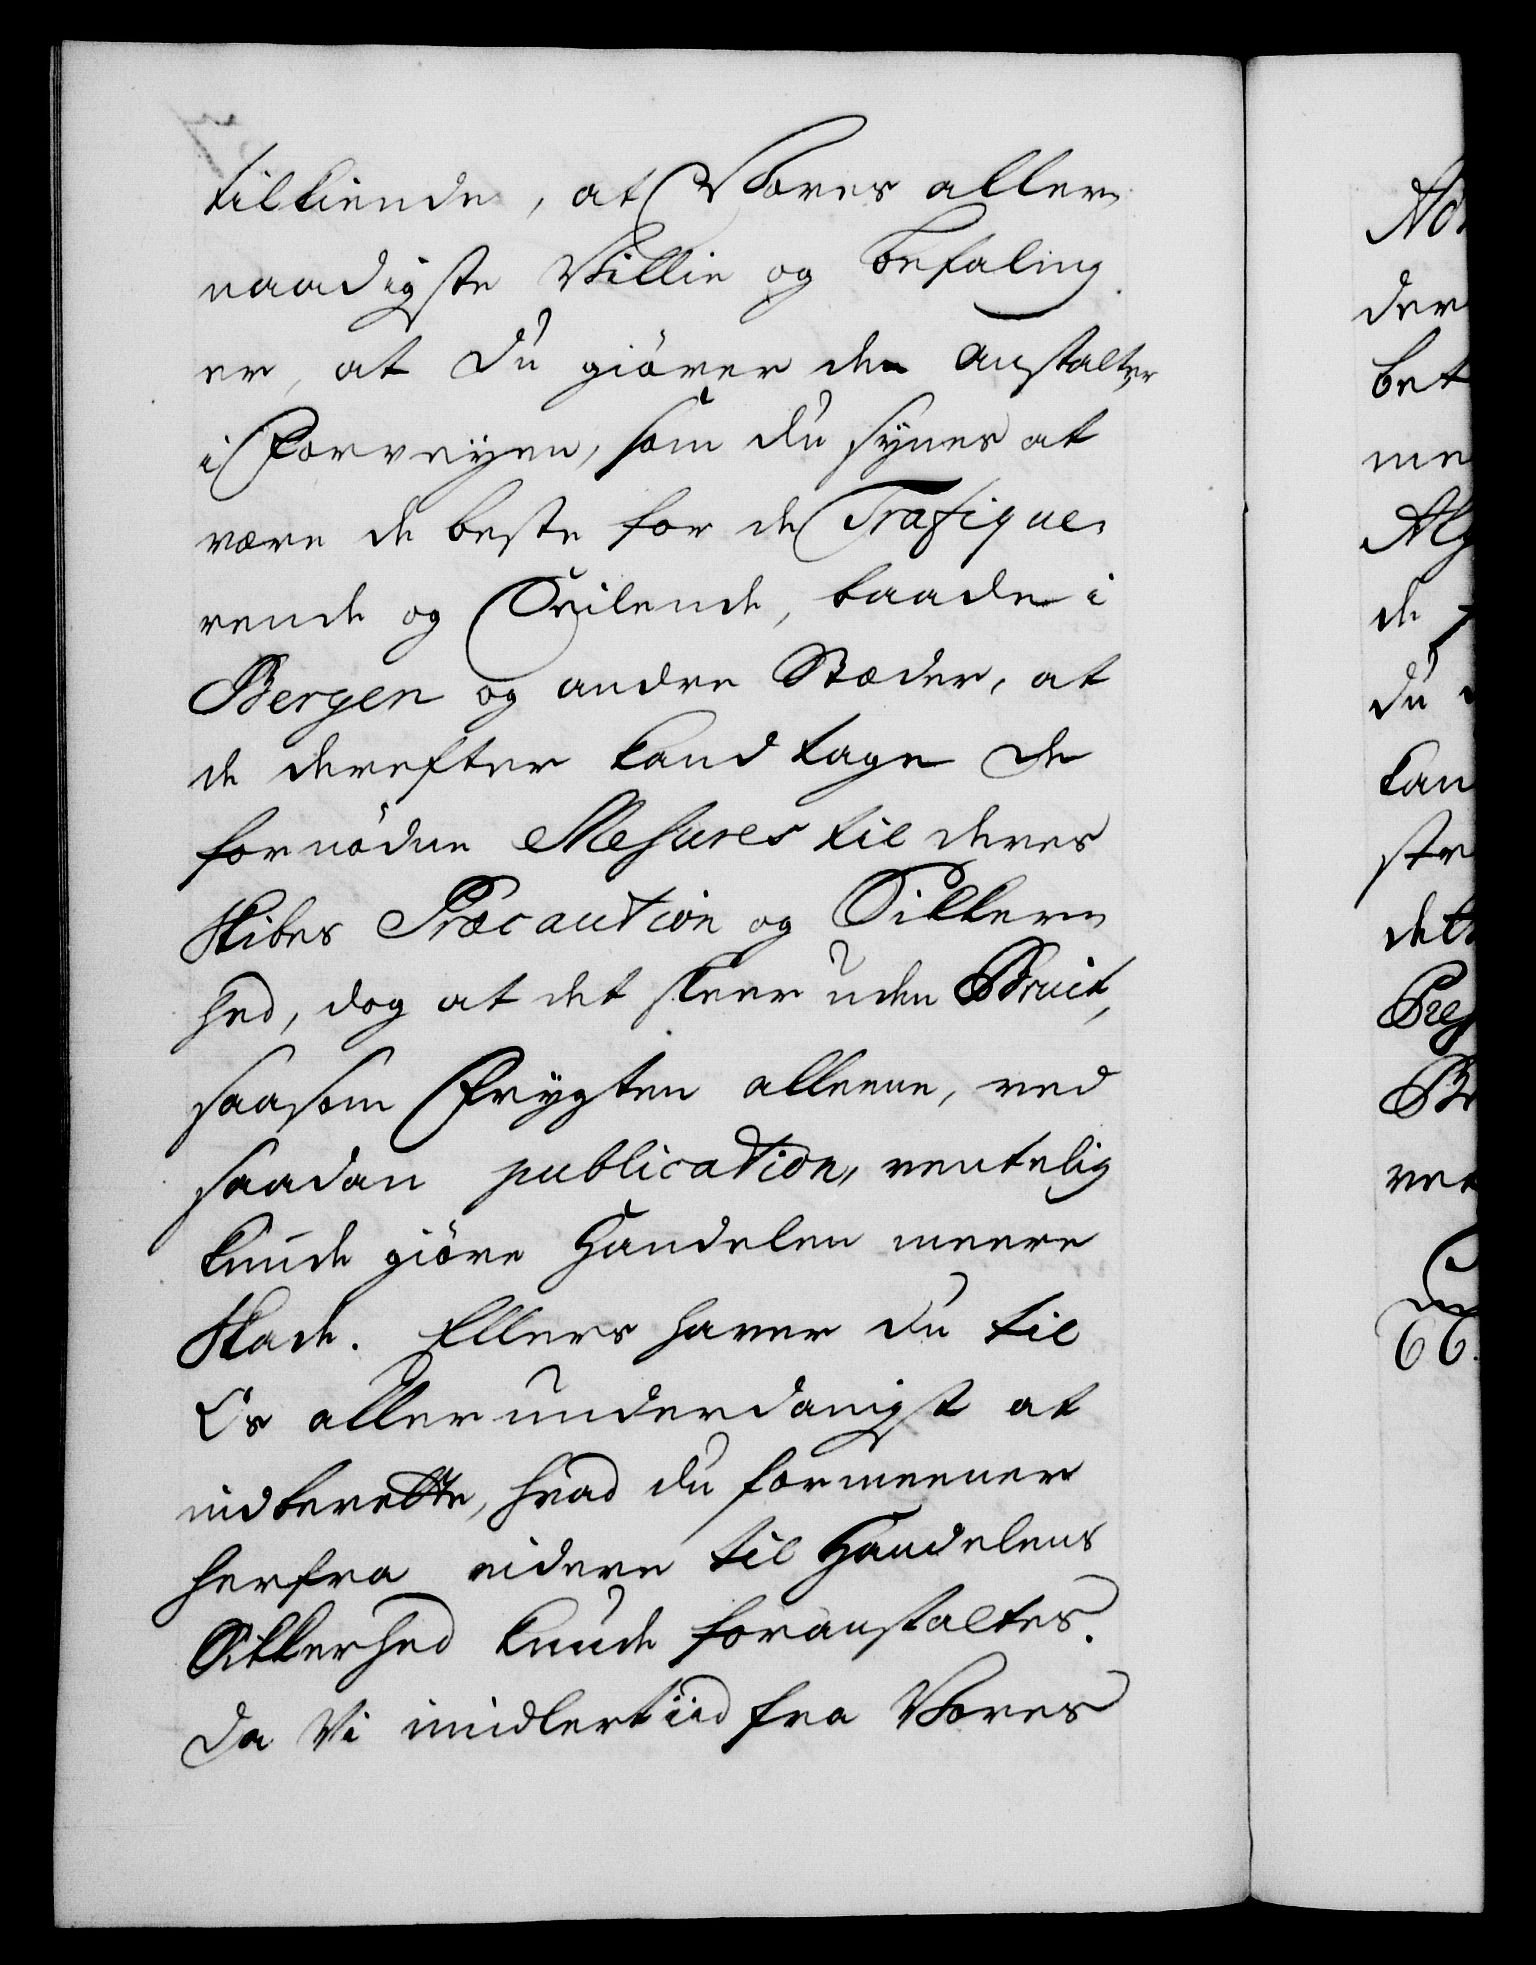 tilkiende, at Vores aller-
naadigste Villie og befaling
er, at du giörer de anstalter
i Forveyen, som du synes at
være de beste for de Trafique-
rende og Seilende, baade i
Bergen og andre Stæder, at
de derefter kand tage de
fornödne Mesures til deres
Skibes Præcaution og Sikker-
hed, dog at det skeer uden Bruit,
saasom Frygten alleene, ved
saadan publication, ventelig
kunde giöre Handelen meere
Skade. Ellers haver du til
Os allerunderdanigst at
indberette, hvad du formeener
herfra videre til Handelens
Sikkerhed kunde foranstaltes.
Da Vi imidlertiid fra Vores
der
bet
me
Alg
de
du
kan
str
det
Pres
Br
ret